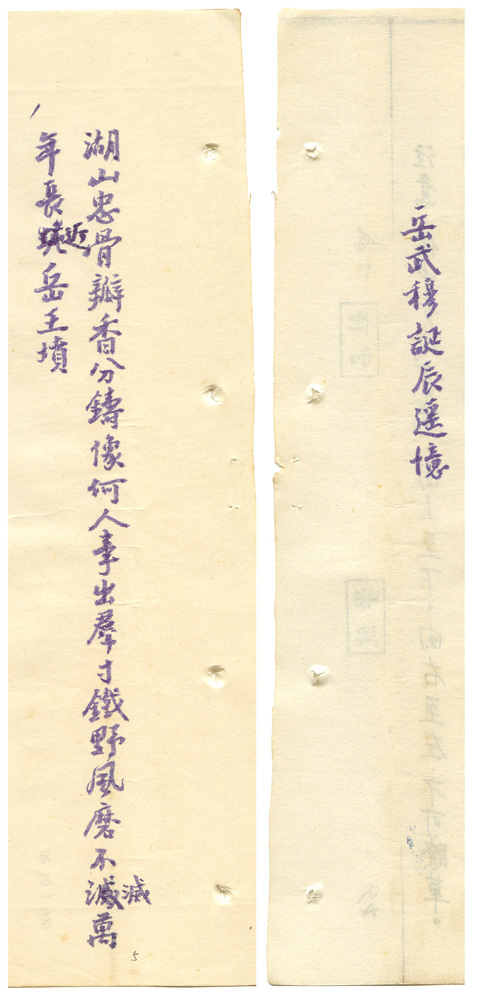 岳武穆誕辰遥憶
湖山忠骨瓣香分鑄像何人事出羣寸鐵野風磨不滅萬
年長近岳王墳
5